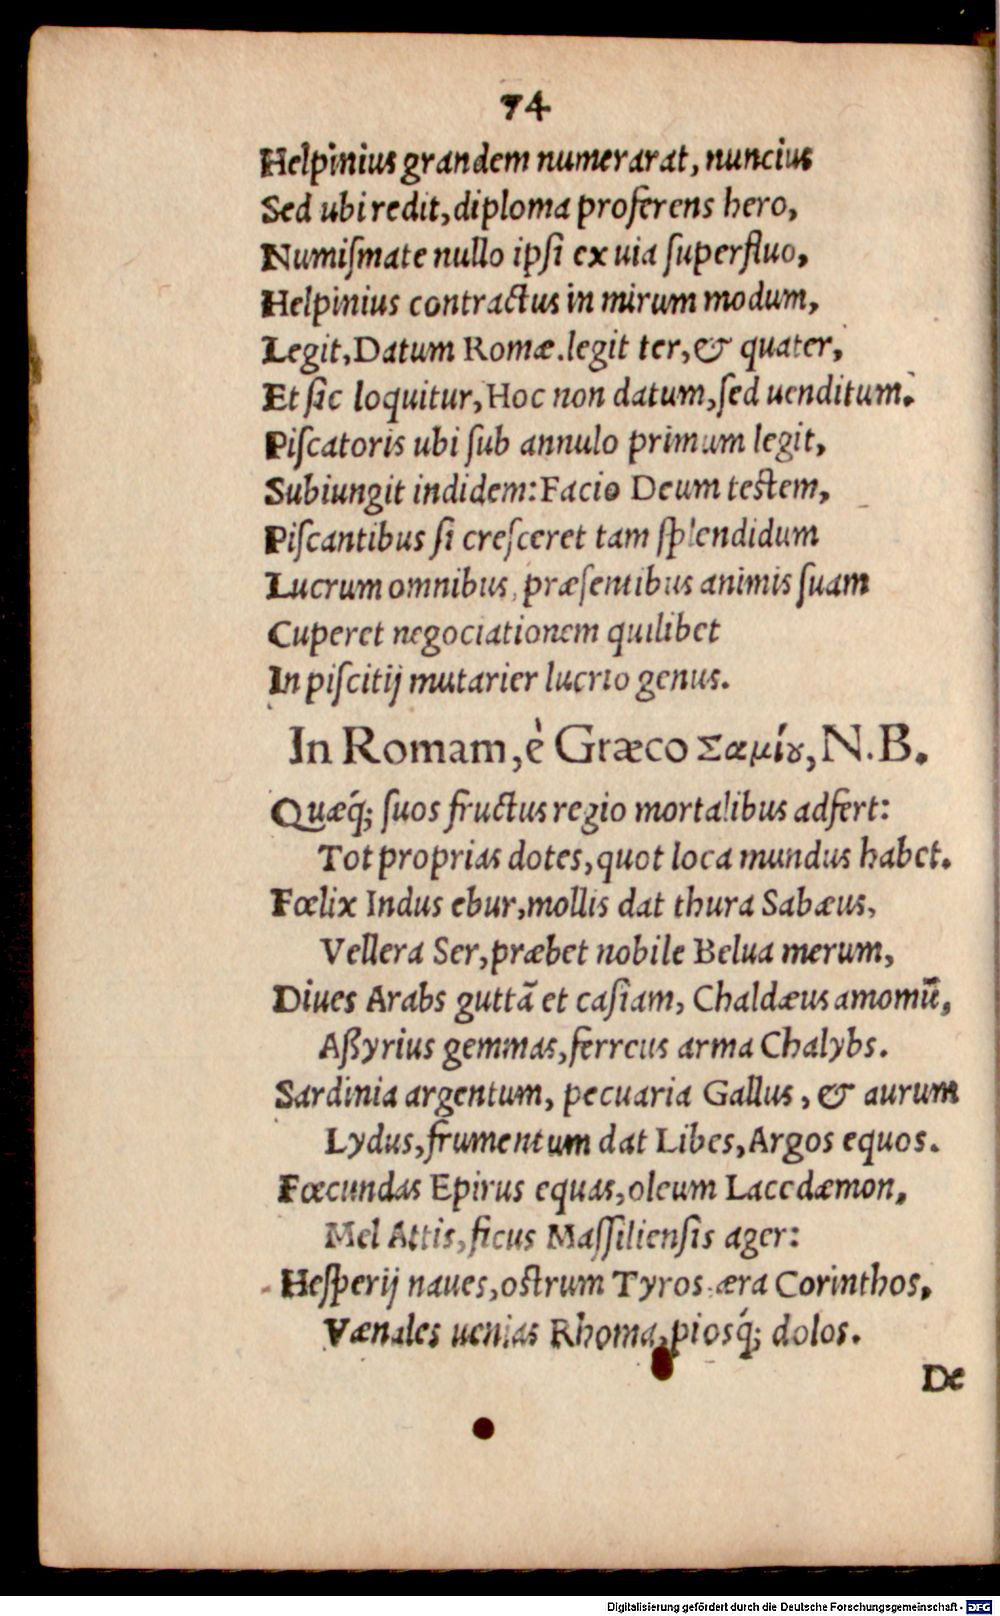 74
Helpinius grandem numerarat, nuncius
Sed ubi redit, diploma proferens hero,
Numiſmate nullo ipſi ex uia ſuperfluo,
Helpinius contractus in mirum modum,
Legit, Datum Romæ. legit ter, & quater,
Et ſic loquitur, Hoc non datum, ſed uenditum.
Piſcatoris ubi ſub annulo primum legit,
Subiungit indidem: Facio Deum teſtem,
Piſcantibus ſi creſceret tam ſplendidum
Lucrum omnibus, præſentibus animis ſuam
Cuperet negociationem quilibet
In piſcitij mutarier lucrio genus.
In Romam, è Græco Σαμίȣ, N. B.
Quæq́; ſuos fructus regio mortalibus adfert:
Tot proprias dotes, quot loca mundus habet.
Fœlix Indus ebur, mollis dat thura Sabæus,
Vellera Ser, præbet nobile Belua merum,
Diues Arabs guttã et caſiam, Chaldæus amomũ,
Aßyrius gemmas, ferreus arma Chalybs.
Sardinia argentum, pecuaria Gallus, & aurum
Lydus, frumentum dat Libes, Argos equos.
Fœcundas Epirus equas, oleum Lacedæmon,
Mel Attis, ficus Maſſilienſis ager:
Heſperij naues, oſtrum Tyros, æra Corinthos,
Vænales uenias Rhoma, piosq́; dolos.
De
Digitalisierung gefördert durch die Deutsche Forschungsgemeinschaft - DFG